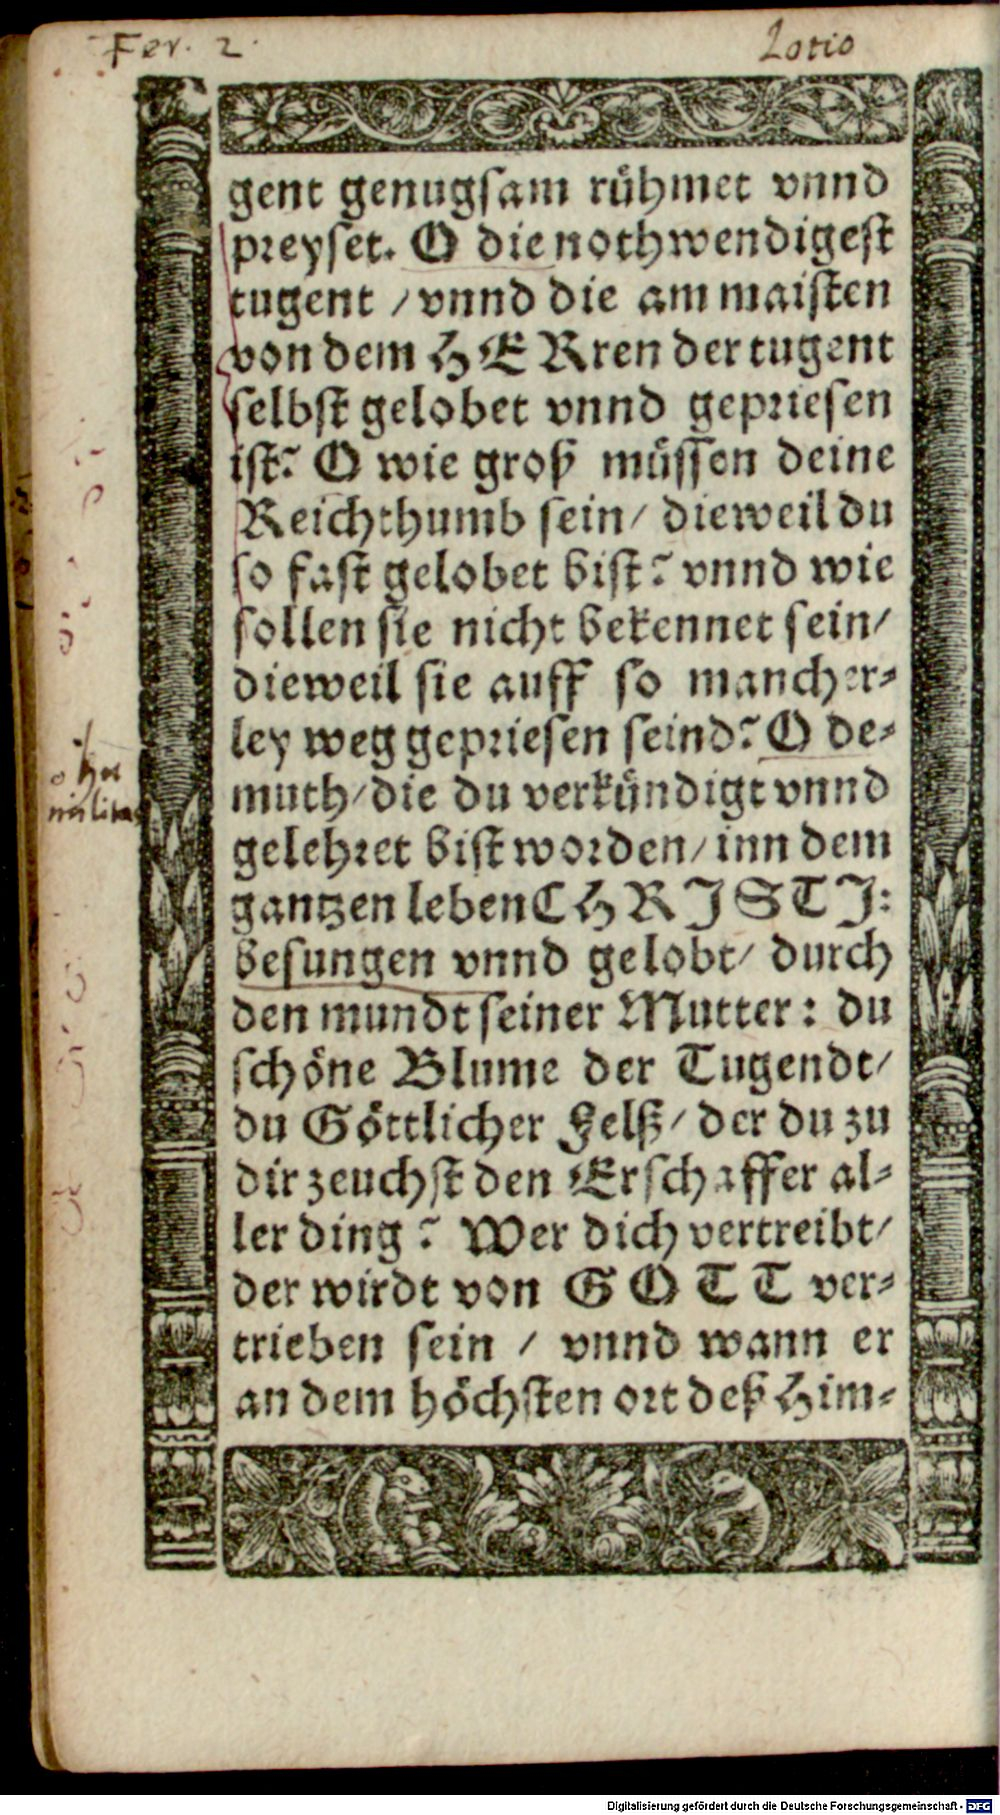 Fer. 2. Lotio
gent genugsam rühmet vnnd
preyset. O die nothwendigest
tugent / vnnd die am maisten
von dem HERren der tugent
selbst gelobet vnnd gepriesen
ist? O wie groß müssen deine
Reichthumb sein / dieweil du
so fast gelobet bist? vnnd wie
sollen sie nicht bekennet sein /
dieweil sie auff so mancher-
ley weg gepriesen seind? O de-
muth / die du verkündigt vnnd
gelehret bist worden / inn dem
gantzen leben CHRISTI:
besungen vnnd gelobt / durch
den mundt seiner Mutter: du
schöne Blume der Tugendt /
du Göttlicher Felß / der du zu
dir zeuchst den Erschaffer al-
ler ding? Wer dich vertreibt /
der wirdt von GOTT ver-
trieben sein / vnnd wann er
an dem höchsten ort deß Him-
o hu
militas
Digitalisierung gefördert durch die Deutsche Forschungsgemeinschaft - DFG